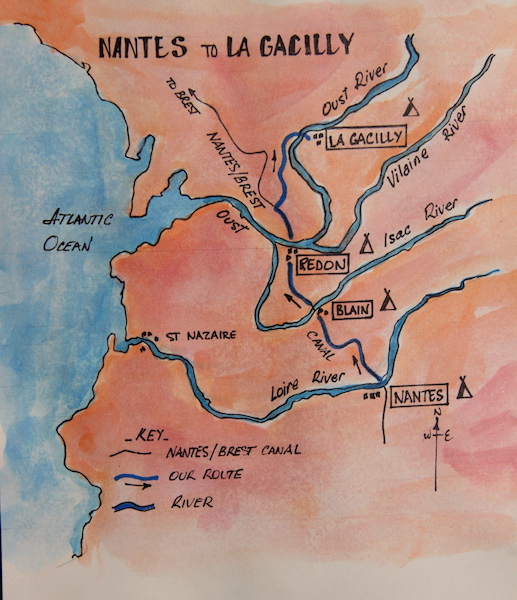 NANTES TO LA GACILLY
TO BREST
NANTES/BREST
Oust River
LA GACILLY
Vilaine River
ATLANTIC
OCEAN
OUST
Isac River
REDON
BLAIN
CANAL
ST NAZAIRE
Loire River
NANTES
N
W E
_ KEY_
NANTES/BREST CANAL
OUR ROUTE
RIVER